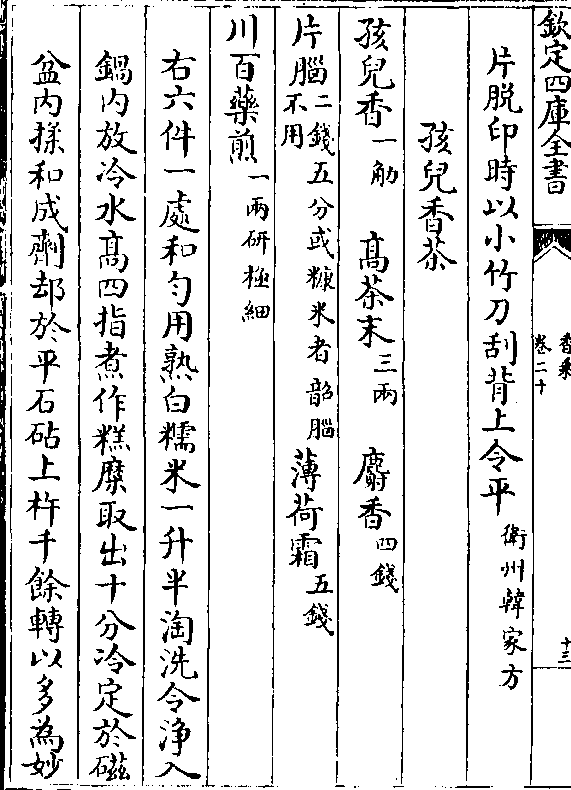 欽定四庫全書
香乘
卷二十
十三
片脱印時以小竹刀刮背上令平衛州韓家方
孩兒香茶
孩兒香一觔 髙茶末三兩 麝香四錢
片腦二錢五分或糠米者韶腦不用 薄荷霜五錢
川百藥煎一兩研極細
右六件一處和勻用熟白糯米一升半淘洗令浄入
鍋内放冷水髙四指煮作糕糜取出十分冷定於磁
盆内揉和成劑却於平石砧上杵千餘轉以多為妙